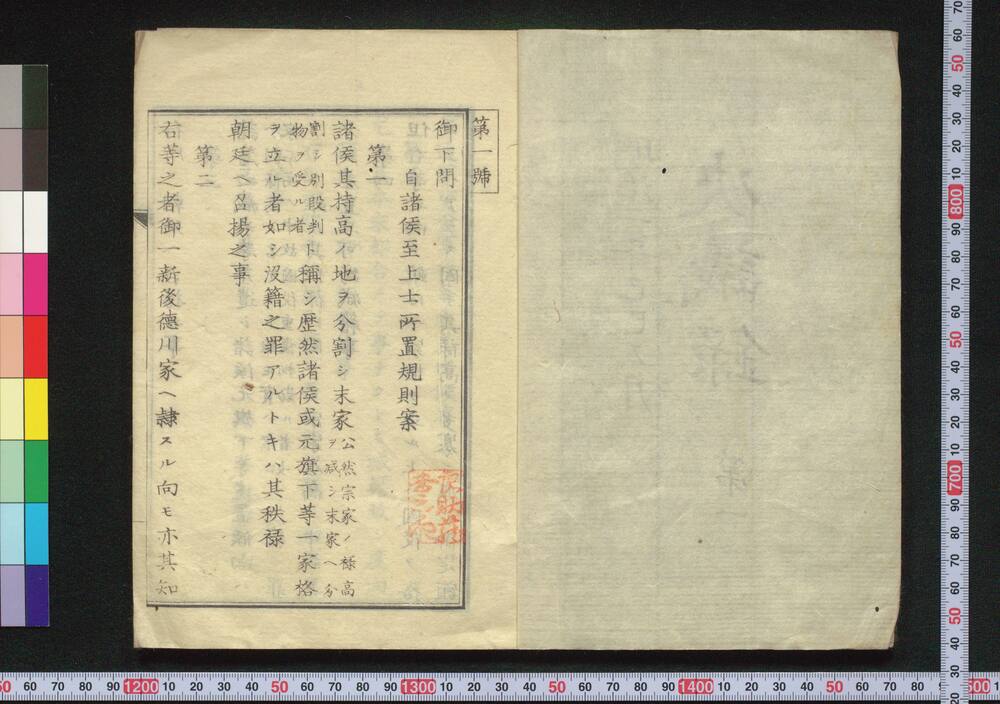 第一號
御下問
自諸侯至上士所置規則案
第一
諸侯其持高不地ヲ分割シ末家公然宗家ノ祿高ヲ减シ末家ヘ分
割シ別段判物ヲ受ル者ト稱シ歴然諸侯或元旗下等一家格
ヲ立ル者如シ沒籍之罪アルトキハ其秩禄
朝廷ヘ召揚之事
第二
右等之者御一新後德川家ヘ隷スル向モ亦其知